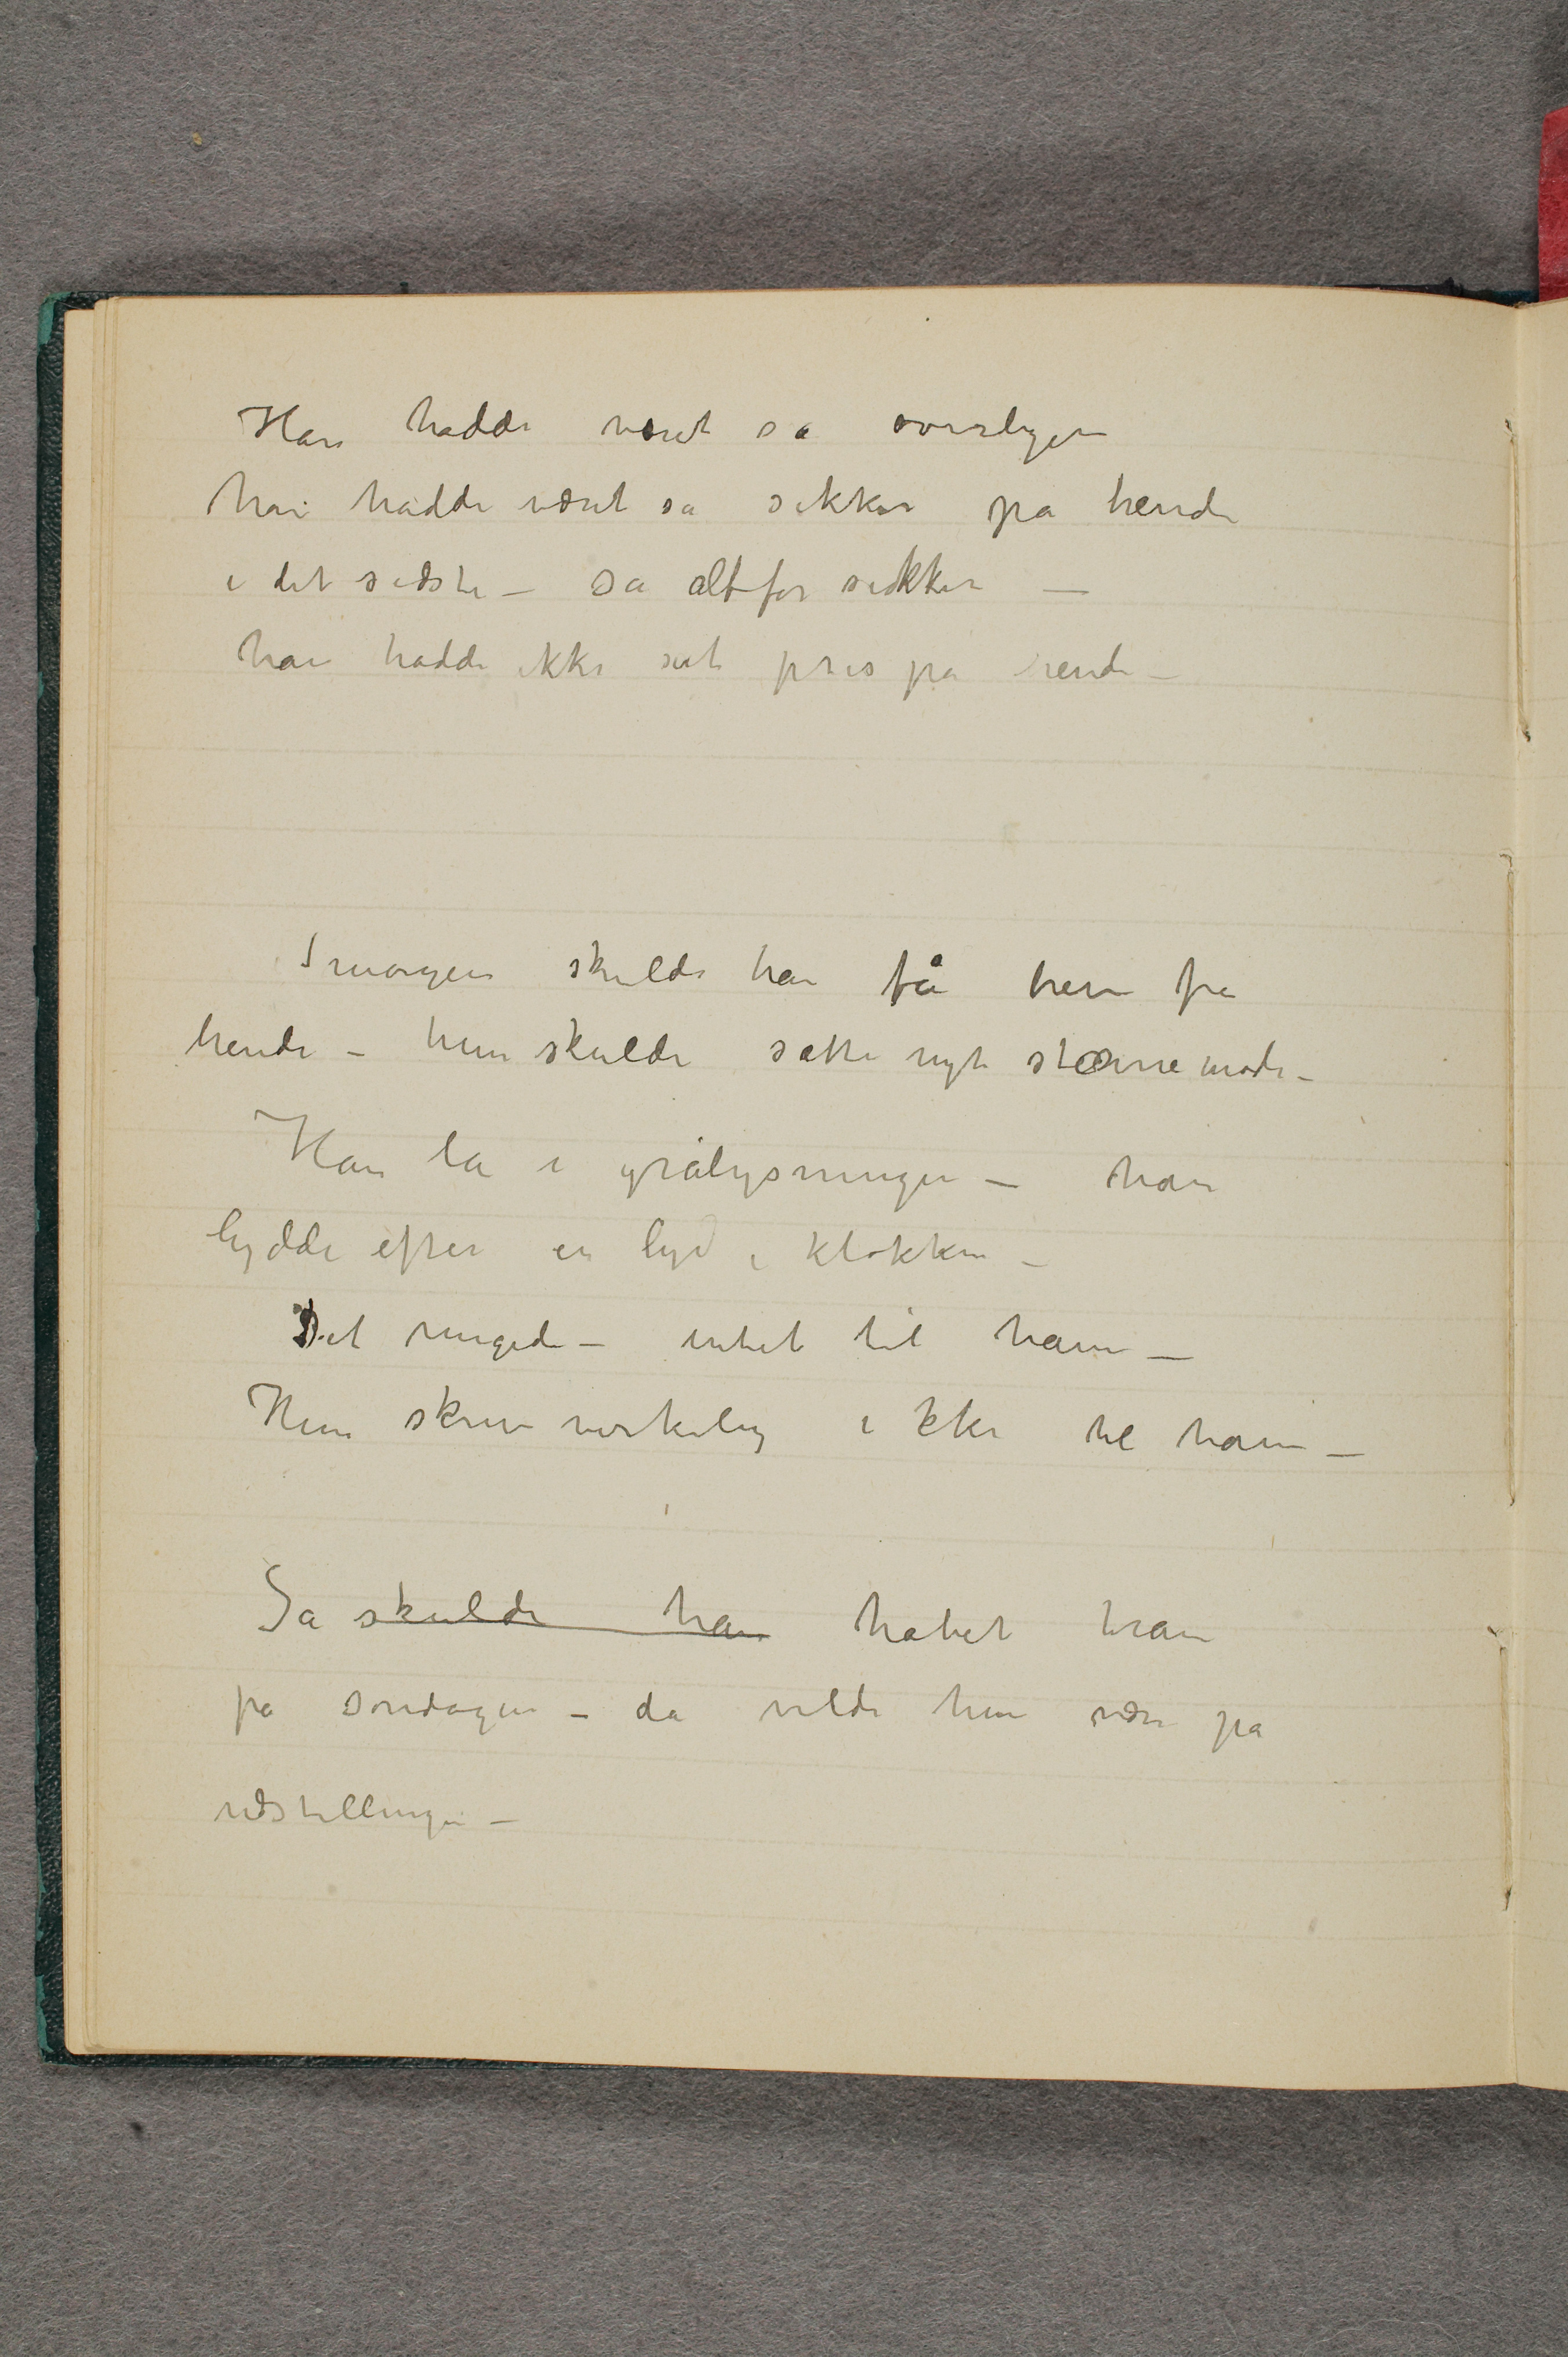 Han hadde været så overlegen
han hadde været så sikker på hende
i det sidste – så altfor sikker –
han hadde ikke sat pris på hende –
I morgen skulde han få brev fra
hende – hun skulde sætte nyt stævnemøde –
Han lå i grålysningen – han
lydde efter en lyd i klokken –
Det ringede – intet til ham –
Hun skrev virkelig ikke til ham –
Så skulde han håbet han
på søndagen – da vilde hun være på
udstillingen –